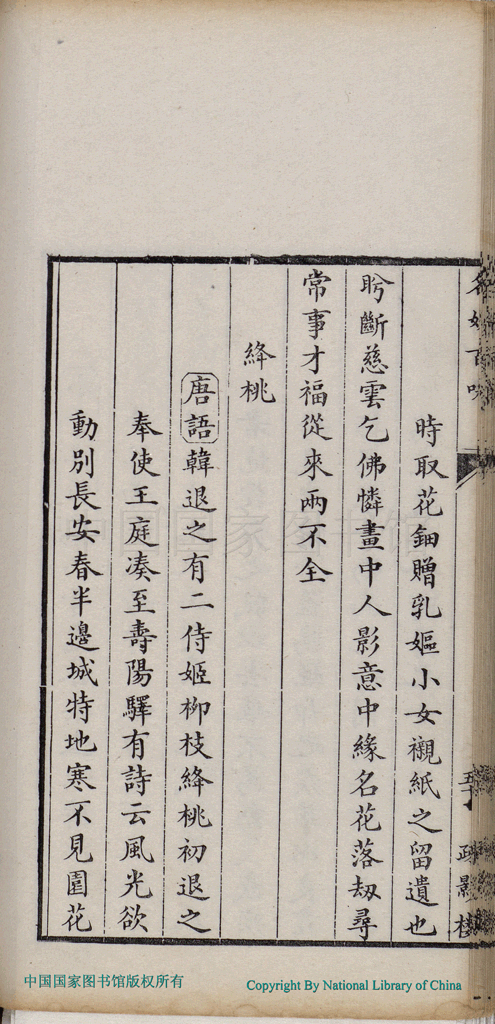 時取花鈿贈乳嫗小女襯紙之留遺也
盻斷慈雲乞佛憐畫中人影意中緣名花落刼尋
常事才福從來兩不全
絳桃
唐語韓退之有二侍姬柳枝絳桃初退之
奉使王庭凑至壽陽驛有詩云風光欲
動別長安春半邊城特地寒不見園花
中国国家图书馆版权所有
Copyright By National Library of China